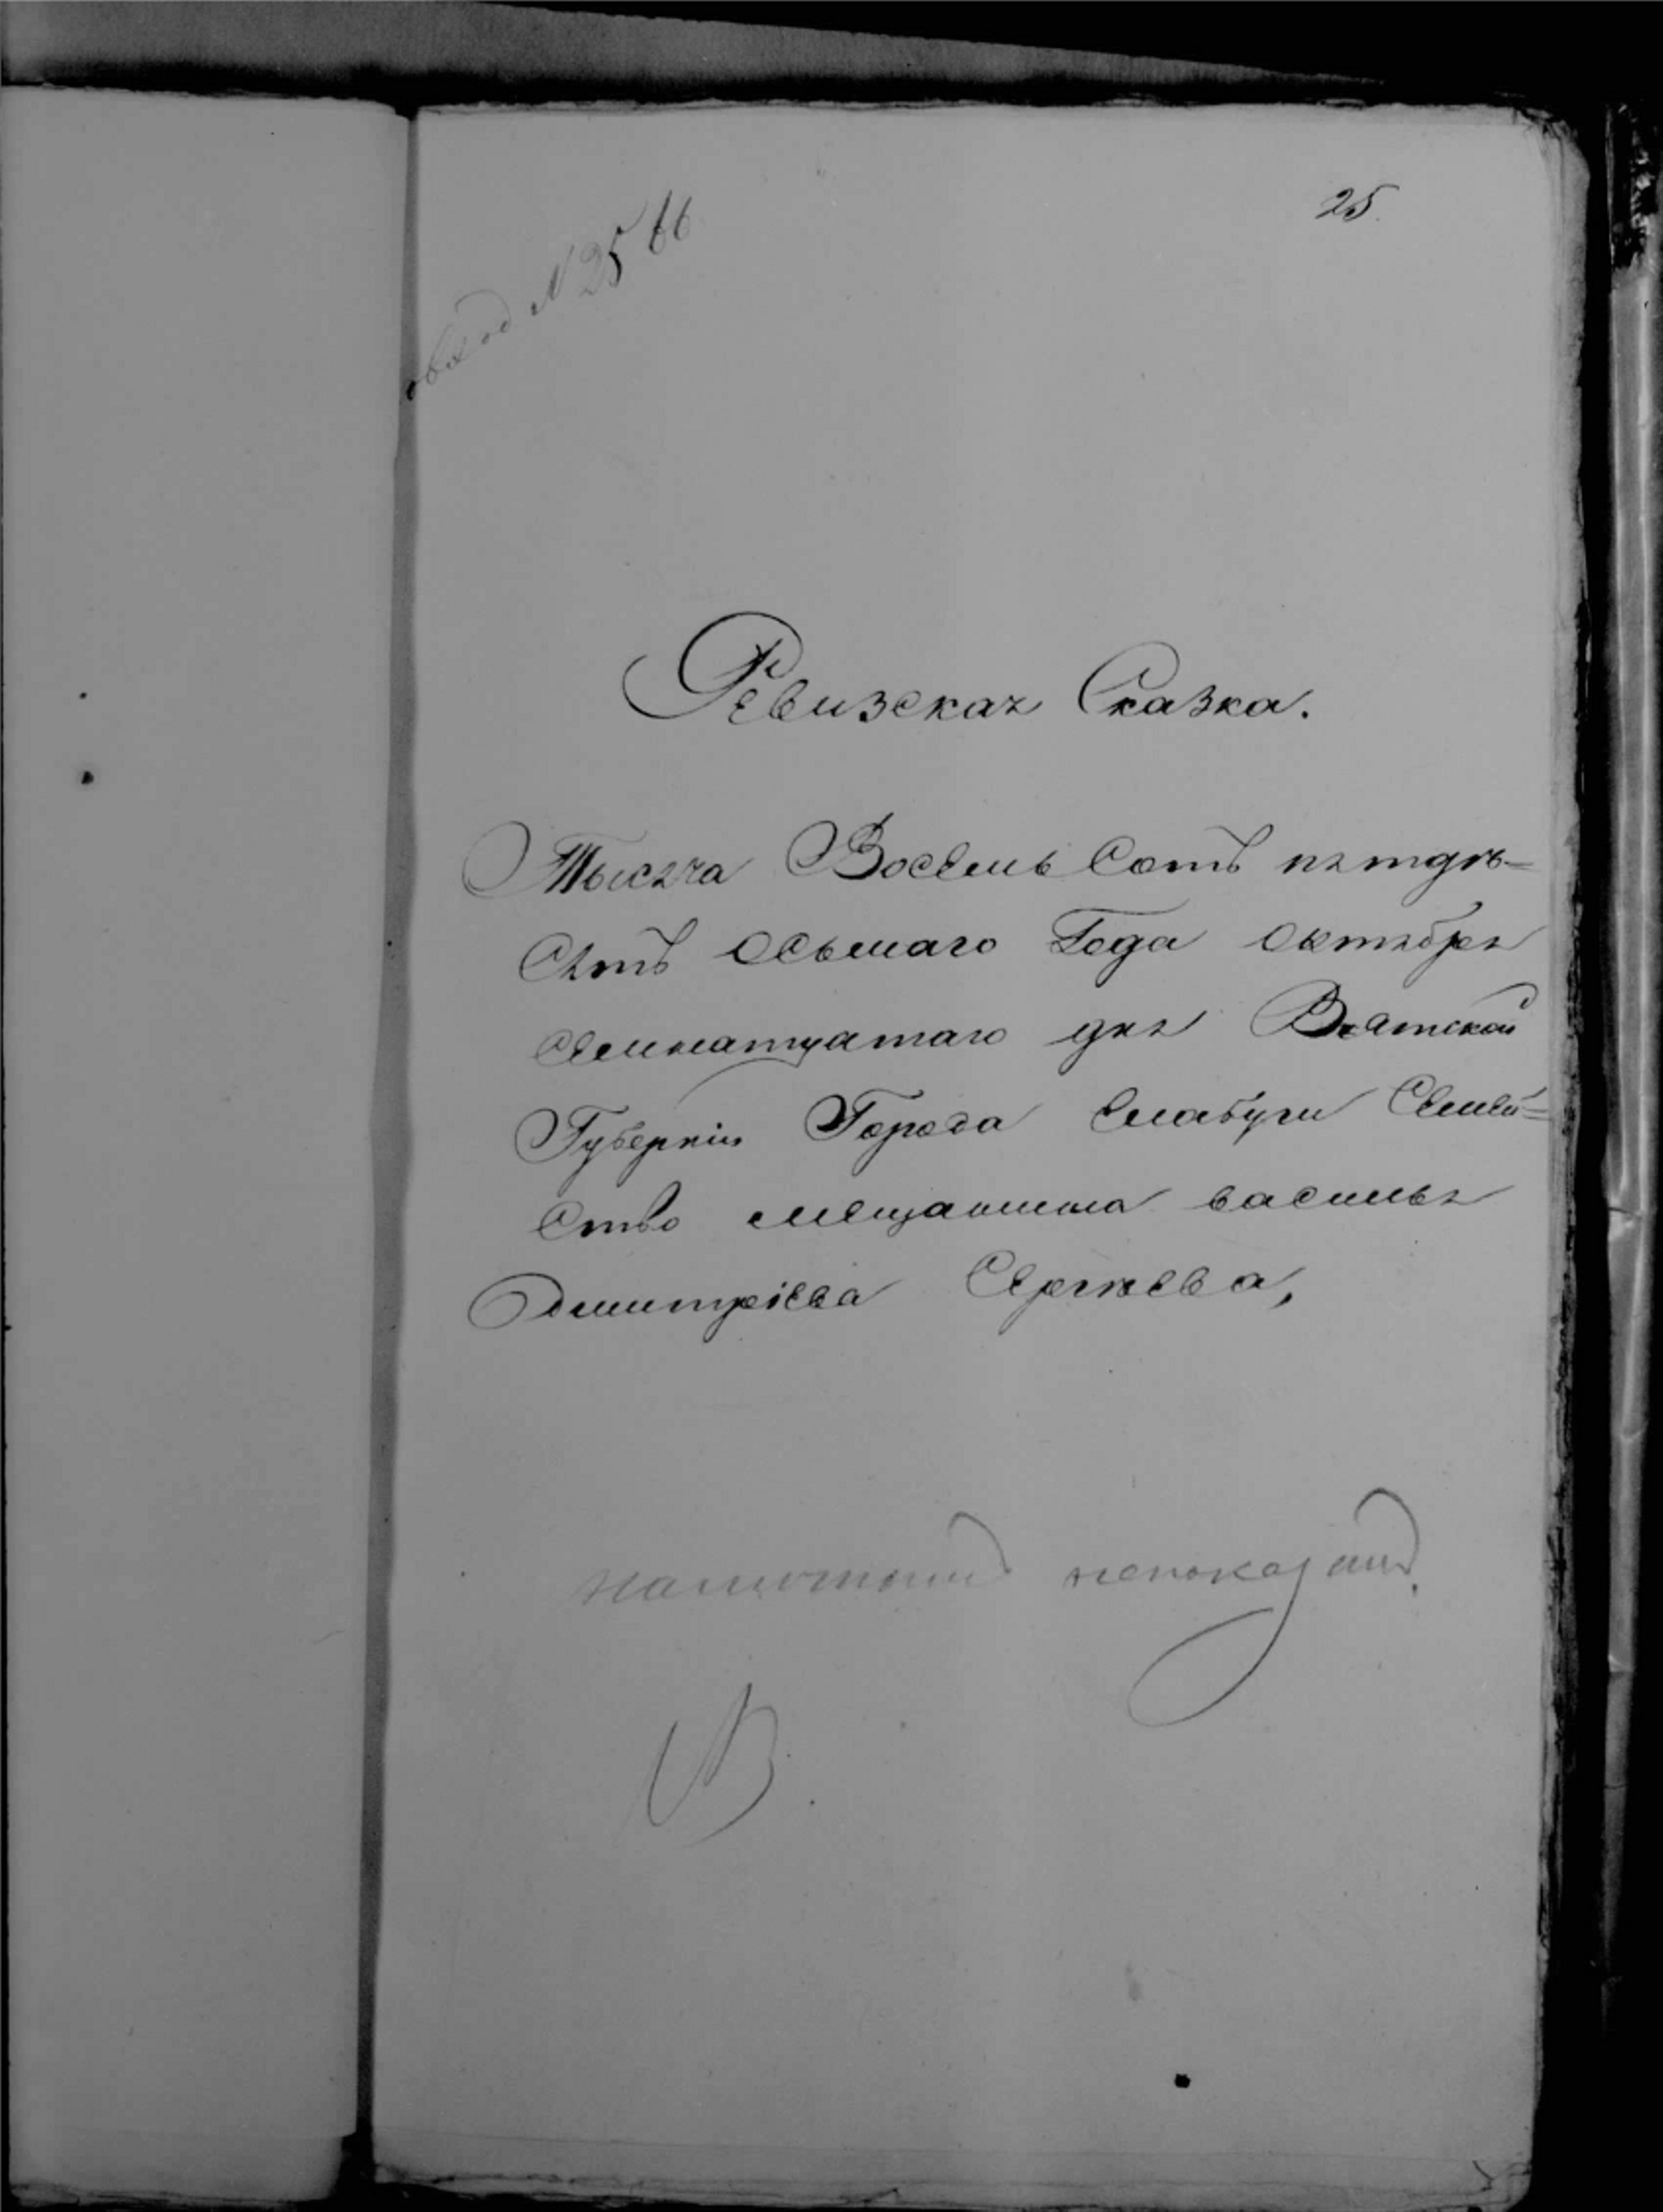 25.
№ 25 66
Ревизская Сказка.
Тысяча Восемь Сотъ пятдѣ=
сятъ Осьмаго Года Октября
Семнатцатаго дня Вятской
Губерніи Города Елабуги Семей=
ство мещанина Василья
Дмитріева Сергѣева,
непоказан
В.